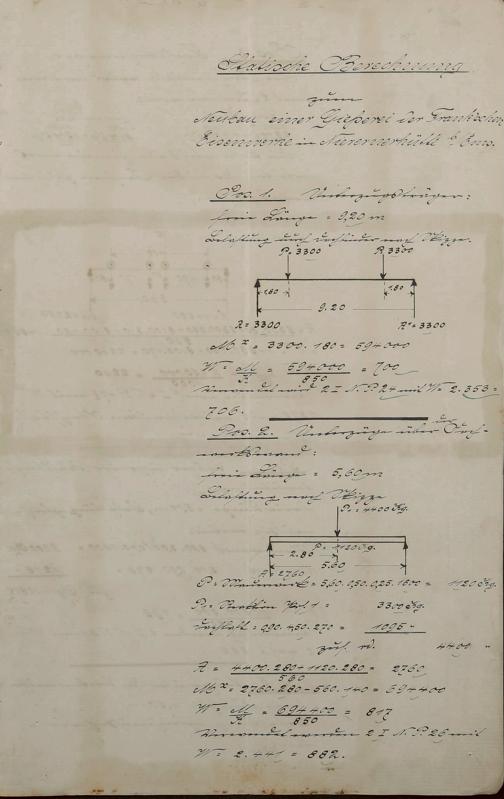 Statische Berechnung
zum
Neubau einer Gießerei der Frankschen
Eisenwerke in Nievernerhütte b/ Ems.
Pos. 1. Unterzugsträger:
freie Länge = 9,20 m
Belastung durch nach Skizze.
P = 3300 P. 3300
1.80 1.80
9.20
A = 3300 A = 3300
Mx = 3300. 180 = 594000
W = M/K = 594000/850 = 700
Verwendet wird 2 I N.P. 24 mit W = 2.353 =
706.
Pos. 2. Unterzüge über der Fach-
werkswand:
freie Länge = 5,60 m
Belastung nach Skizze
P1 = 4400 Kg.
P = 1120 Kg.
2.80
5.60
A = 2760
P = Mauerwerk = 5,60. 0,50. 0,25. 1600 = 1120 Kg.
P1 = Reaktion Pos. 1 = 3300 Kg.
Dachlast = 0,90. 4,50. 270 = 1095 "
zus. rd. 4400 "
A = 4400. 280 + 1120. 280/560 = 2760
Mx = 2760. 280 - 560. 140 = 694400
W = M/K = 694400/850 = 817
Verwendet werden 2 I N.P. 26 mit
W = 2.441 = 882.